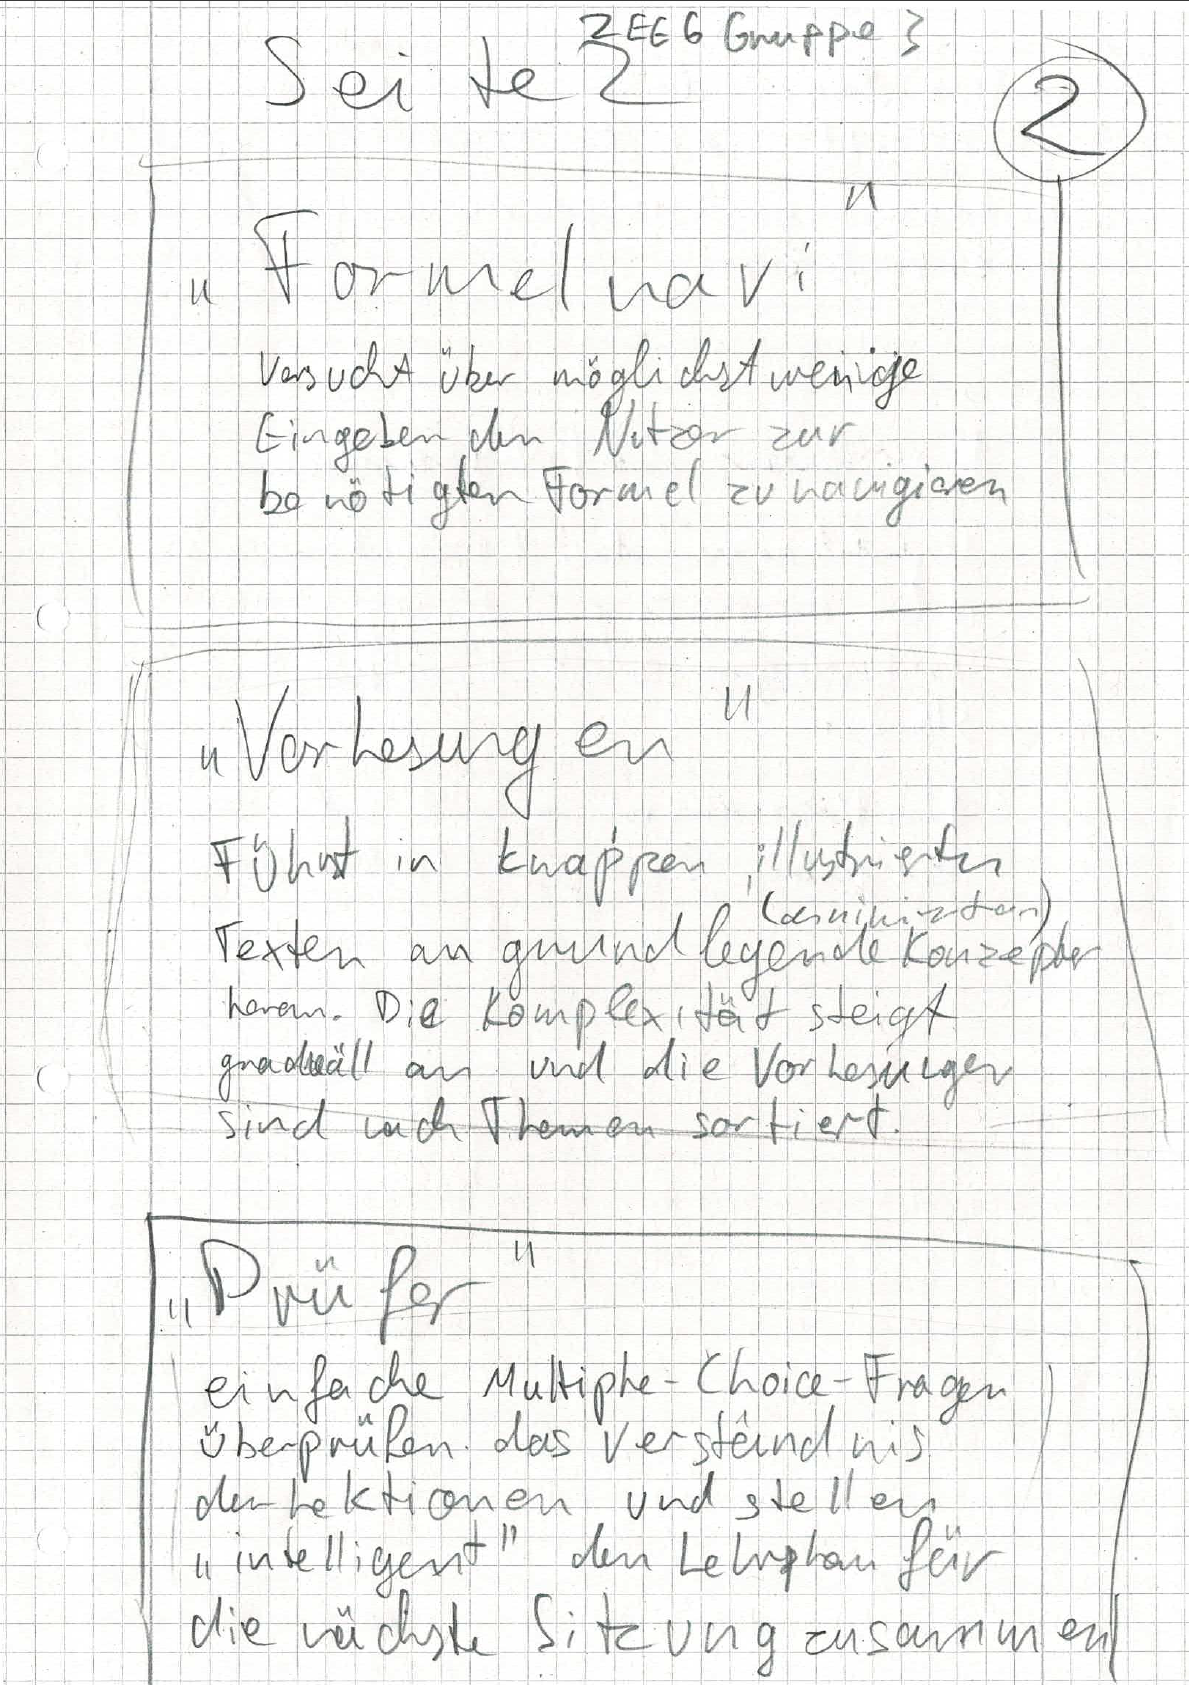 ZEE6 Gruppe 3
Seite 2
2
„Formelnavi"
Versucht über möglichst wenige
Eingaben den Nutzer zur
benötigten Formel zu navigieren
„Vorlesungen"
Führt in knappen, illustrierten
(animierten)
Texten an grundlegende Konzepte
heran. Die Komplexität steigt
graduell an und die Vorlesungen
sind nach Themen sortiert.
„Prüfer"
einfache Multiple-Choice-Fragen
überprüfen das Verständnis
der Lektionen und stellen
„intelligent" den Lehrplan für
die nächste Sitzung zusammen